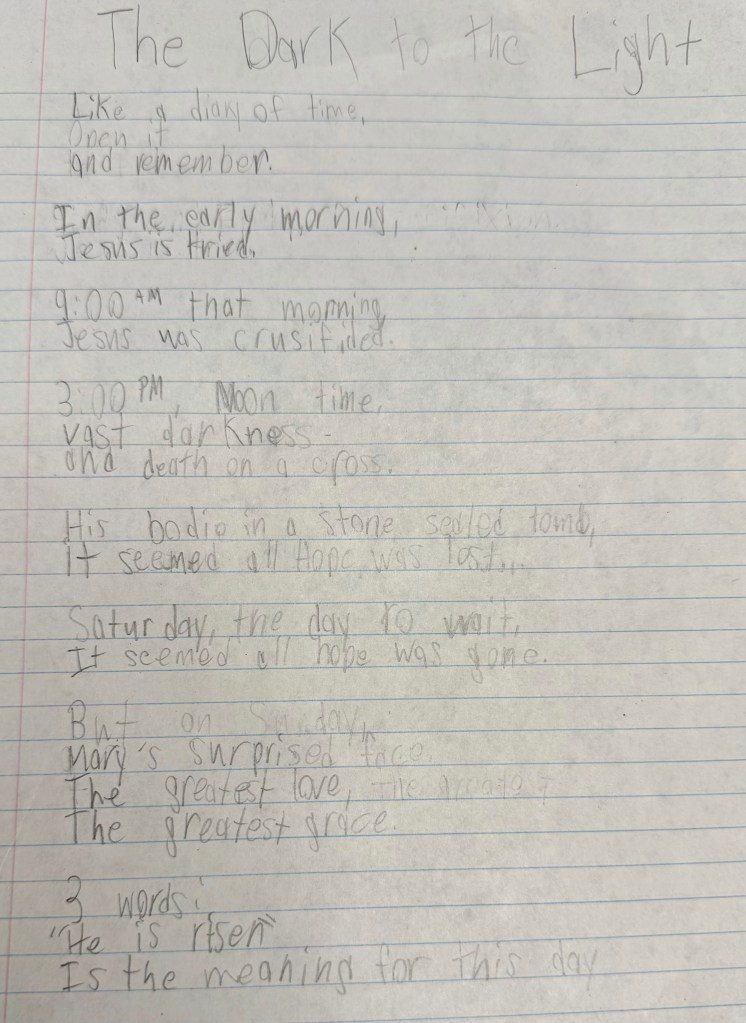 The Dark to the Light
Like a diary of time,
Open it
and remember.
In the early morning,
Jesus is tried.
9:00 AM that morning,
Jesus was crusifided.
3:00 PM, Noon time,
vast darkness-
and death on a cross.
His bodie in a stone sealed tomb,
it seemed all Hope was lost...
Saturday, the day to wait,
It seemed all hope was gone.
But on Sunday,
Mary's surprised face.
The greatest love,
The greatest grace.
3 words:
"He is risen"
Is the meaning for this day